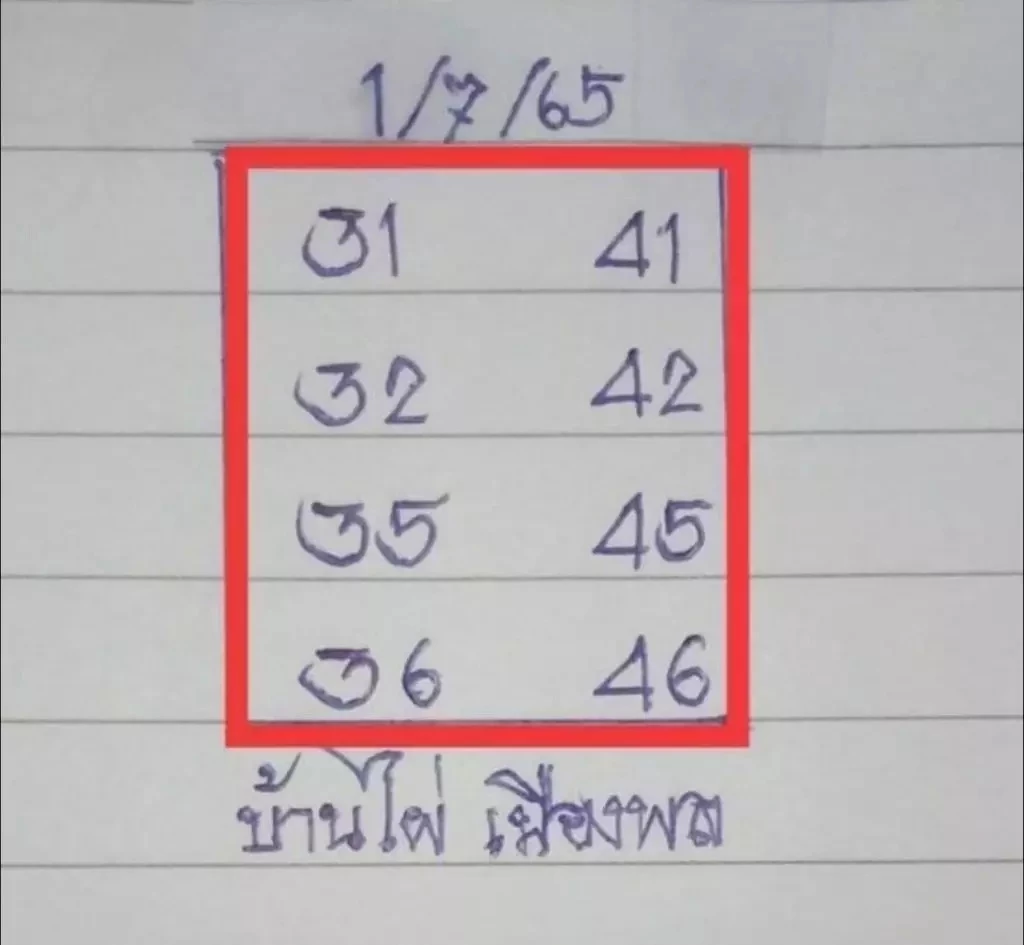 1/7/65
31 41
32 42
35 45
36 46
บ้านไผ่ เมืองพล